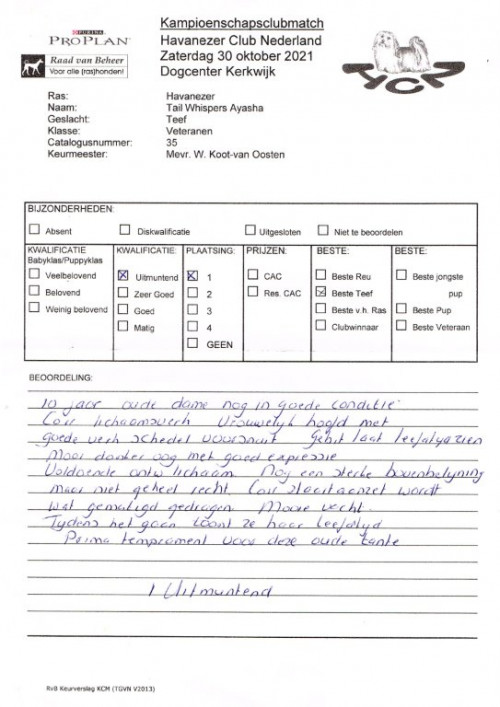 Kampioenschapsclubmatch
PURINA
PRO PLAN
Havanezer Club Nederland
Zaterdag 30 oktober 2021
Dogcenter Kerkwijk
Raad van Beheer
Voor alle (ras)honden!
HCN
Ras: Havanezer
Naam: Tail Whispers Ayasha
Geslacht: Teef
Klasse: Veteranen
Catalogusnummer: 35
Keurmeester: Mevr. W. Koot-van Oosten
BIJZONDERHEDEN:
Absent Diskwalificatie Uitgesloten Niet te beoordelen
KWALIFICATIE KWALIFICATIE: PLAATSING: PRIJZEN: BESTE: BESTE:
Babyklas/Puppyklas
Veelbelovend Uitmuntend 1 CAC Beste Reu Beste jongste
Belovend Zeer Goed 2 Res. CAC Beste Teef pup
Weinig belovend Goed 3 Beste v.h. Ras Beste Pup
Matig 4 Clubwinnaar Beste Veteraan
GEEN
BEOORDELING:
10 jaar oude dame nog in goede conditie.
Corr lichaamsverh Vrouwelijk hoofd met
goede verh schedel voorsnuit Gebit laat leeftijd zien
Mooi donker oog met goed expressie
Voldoende ontw lichaam Nog een sterke bovenbelijning
maar niet geheel recht. Corr staartaanzet wordt
wat gematigd gedragen Mooie vacht.
Tijdens het gaan toont ze haar leeftijd
Prima temperament voor deze oude tante
1 Uitmuntend
RvB Keurverslag KCM (TGVN V2013)